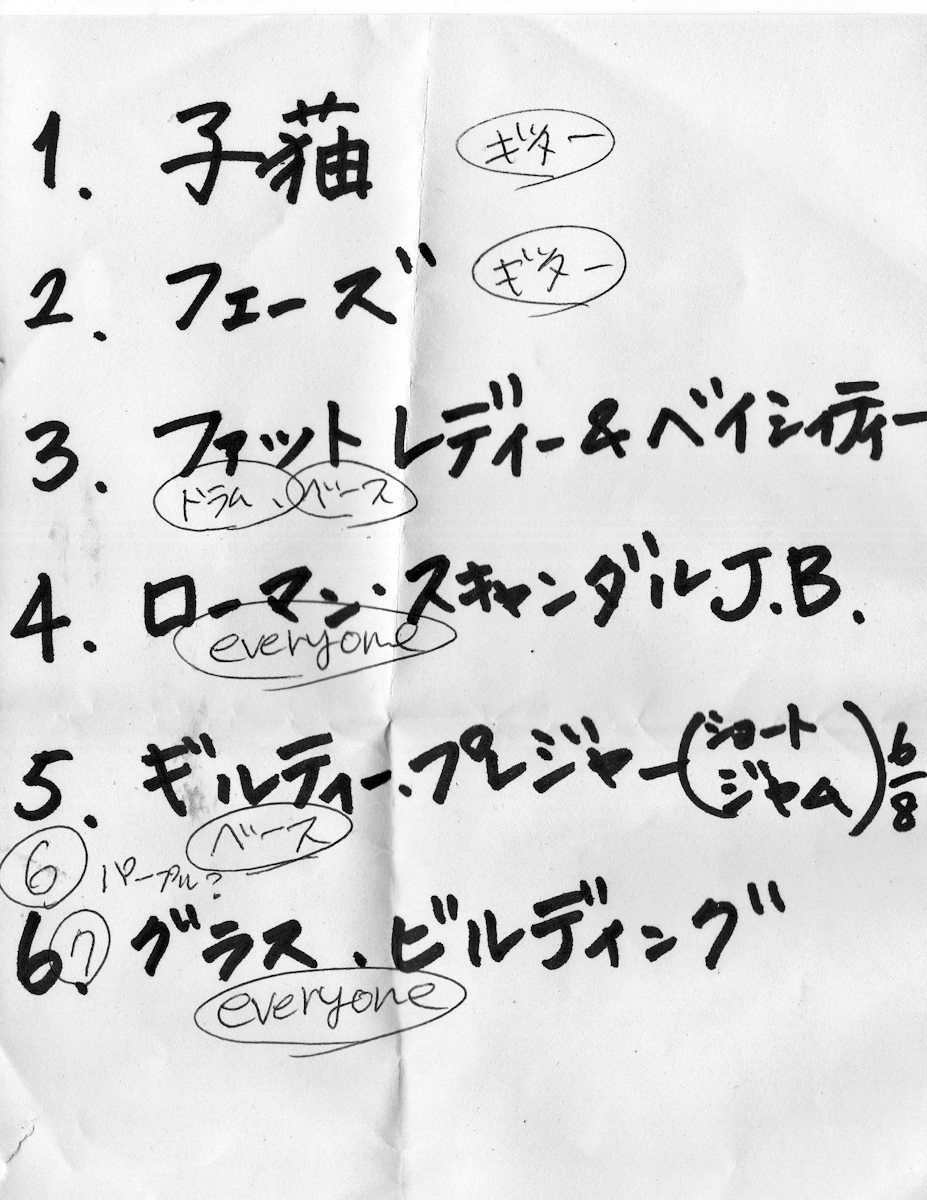 1. 子猫 ギター
2. フェーズ ギター
3. ファット レディー & ベイシティー
ドラム、ベース
4. ローマン・スキャンダル J.B.
everyone
5. ギルティー・プレジャー (ショートジャム) 6/8
ベース
6 パープル?
6. 7 グラス・ビルディング
everyone